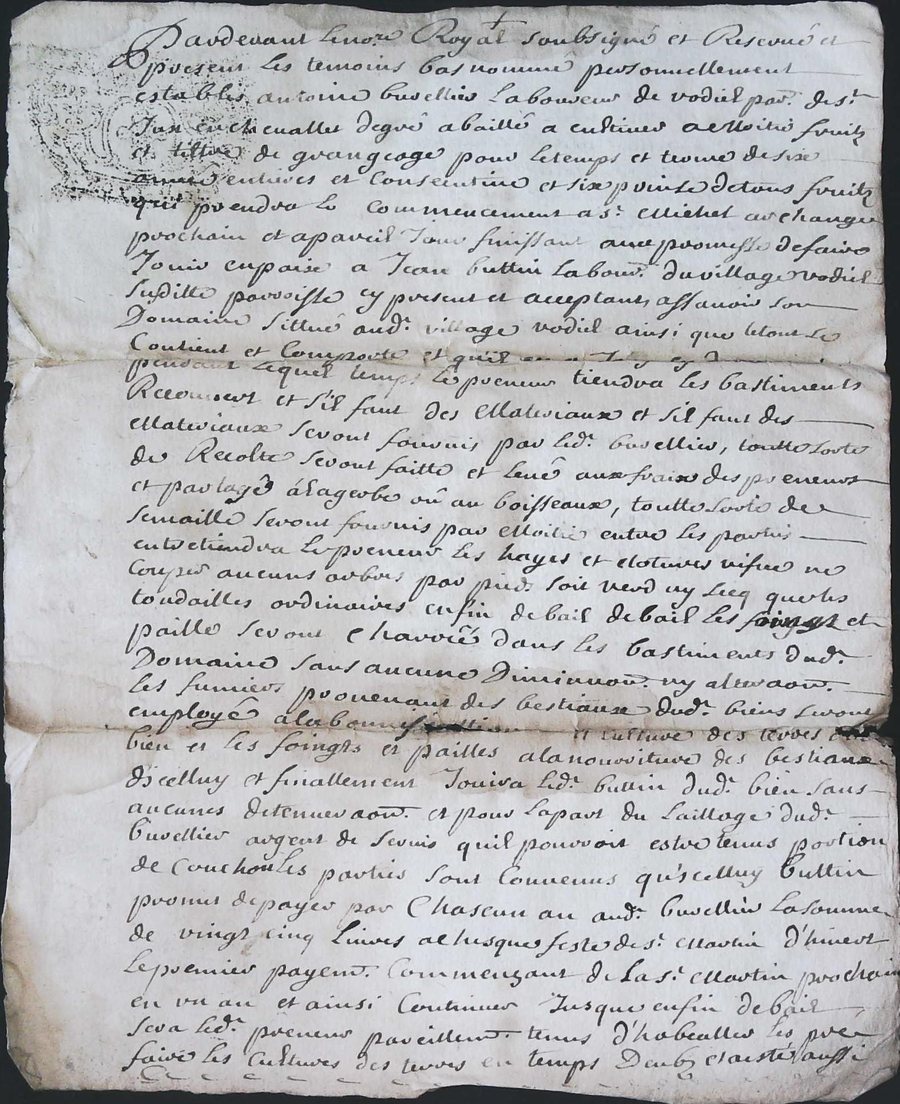 Pardevant le no.re Royal soubsigné et Reservé et
present les temoins bas nommé personnellement
establis antoine buvellier laboureur de vodiel par. de s.t
Jan en chevallet de gré a baillé a cultiver a moitié fruitz
et tiltre de grangeage pour le temps et terme de six
année entieres et Consecutive et six prinse de tous fruitz
qu'il prendra le commencement a s.t Michel archange
prochain et a pareil Jour finissant avec promesse de faire
Jouir en paise a Jean buttin labour. du village vodiel
susditte parroisse cy present et acceptant assavoir son
Domaine sittué aud.t village vodiel ainsi que le tout se
Contient et Comporte et qu'il
pendant lequel temps le preneur tiendra les bastiments
Recouvert et s'il faut des Materiaux et s'il faut des
Materiaux seront fournis par led.t buvellier, toutte sorte
de Recolte seront faitte et levé aux fraix des preneurs
et partagé à la gerbe où au boisseaux, toutte sorte de
semaille seront fournis par Moitié entre les partis
entretiendra le preneur les hayes et clotures vifve ne
Couper aucuns arbres par pied soit verd ny secq que les
tondailles ordinaires en fin de bail de bail les foings et
paille seront Charriés dans les bastiments dud.t
Domaine sans aucune Diminuon. ny alteraon.
les fumiers provenant des bestiaux dud.t biens seront
employé à la bonni et culture des terres
bien et les foingts et pailles a la nourriture des bestiaux
d'icelluy et finallement Jouira led.t buttin dud.t bien sans
aucunes detennuraon. et pour la part du taillage dud.t
buvellier argent de servis qu'il pourroit estre tenus portion
de Couchon les parties sont Convenus qu'icelluy buttin
promet de payer par Chascun an aud.t buvellier la somme
de vingt cinq livres a chasque feste de s.t Martin d'hivert
le premier payem.t Commençant de la s.t Martin prochain
en un an et ainsi Continuer Jusque en fin de bail
sera led.t preneur pareillem.t tenus d'habeatter les pre
faire les Cultures des terres en temps Deub et aussi